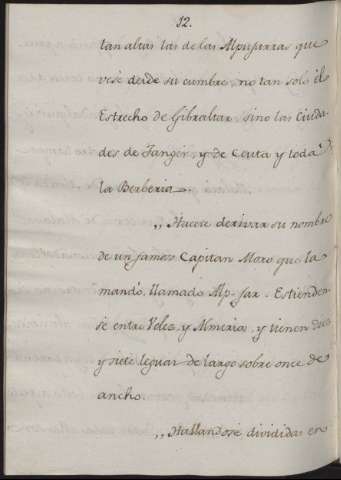 12.
tan altas las de las Alpujarras que
vese desde su cumbre, no tan solo el
Estrecho de Gibraltar sino las Ciuda-
des de Tanger, y de Ceuta y toda
la Berberia.
,, Hacese derivar su nombre
de un famoso Capitan Moro que la
mandó, llamado Alp-jar. Estienden-
se entre Velez, y Almeria, y tienen diez
y siete leguas de largo sobre once de
ancho.
,, Hallandose divididas en